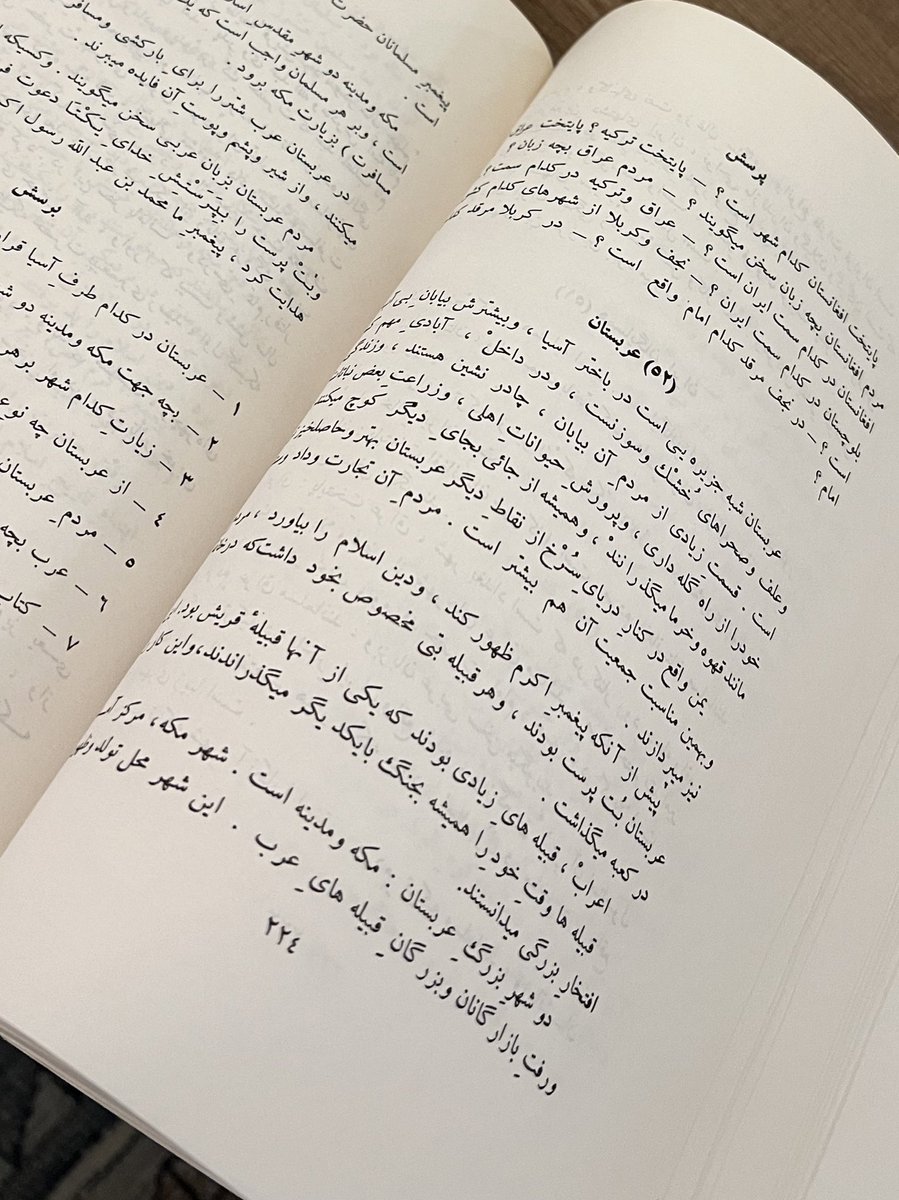 پرسش
پایتخت افغانستان کدام شهر است ؟ – پایتخت ترکیه ؟ پایتخت عراق
مردم افغانستان بچه زبان سخن میگویند ؟ – مردم عراق بچه زبان ؟
افغانستان در کدام سمت ایران است ؟ – عراق وترکیه در کدام سمت ؟
بلوچستان در کدام سمت ایران ؟ – نجف وکربلا از شهر های کدام
است ؟ – در نجف مرقد کدام امام واقع است ؟ – در کربلا مرقد
امام ؟
(٥٢) عربستان
عربستان شبه جزیره یی است در باختر آسیا ، وبیشترش بیابان بی
وعلف وصحراهای خُشْك وسوزنست ، ودر داخلْ ، آبادیِ مهم
است . قسمت زیادی از مردمِ آن بیابان ، چادر نشین هستند ، وزندگی
خودرا از راه گَله داری ، وپرورشِ حیواناتِ اهلی ، وزراعتِ بعض
مانند قهوه وخرما میگذرانندْ ، وهمیشه از جائی بجایِ دیگر کوچ میکنند
یمن واقع در کنار دریایِ سرْخْ از نقاطِ دیگر عربستان بهتر وحاصلخیز
وبهمین مناسبت جمعیت آن هم بیشتر است . مردمِ آن تجارت وداد
نیز میپردازند .
پیش از آنکه پیغمبر اکرم ظهور کند ، ودین اسلام را بیاورد ،
عربستان بُت پرست بودند ، وهر قبیله بُتی مخصوص بخود داشت که
در کعبه میگذاشت .
اعرابْ ، قبیله هایِ زیادی بودند که یکی از آنها قبیلهٔ قریش بود .
قبیله ها وقتِ خود را همیشه بجنگ بایکدیگر میگذراندند ، واین کار
افتخارِ بزرگی میدانستند.
دو شهرِ بزرگِ عربستان : مکه ومدینه است . شهر مکه ، مرکز
ورفتِ بازار گانان وبزرگانِ قبیله هایِ عرب . این شهر محل تولد
٢٢٤
پیغمبرِ مسلمانان حضرت
است .
مکه ومدینه دو شهرِ مقدسِ
است ، وبر هر مسلمان واجب است که
مسافرت ) بزیارتِ مکه برود .
در عربستان عرب شتر را برایِ بارکشی ومسافر
میکنند ، واز شیر وپشم وپوستِ آن فایده میبرند .
مردم عربستان بزبان عربی سخن میگویند . وکسیکه
وبُتْ پرست را بپرَستشِ خدایِ یکتا دعوت
هدایت کرد ، پیغمبرِ ما محمد بن عبد الله رسول
پرسش
١ – عربستان در کدام طرفِ آسیا قرار
٢ – بچه جهت مکه ومدینه دو
٣ – زیارتِ کدام شهر بر هر
٤ – از عربستان چه نوع
٥ – مردمِ عربستان
٦ – عرب بچه
٧ – کتاب